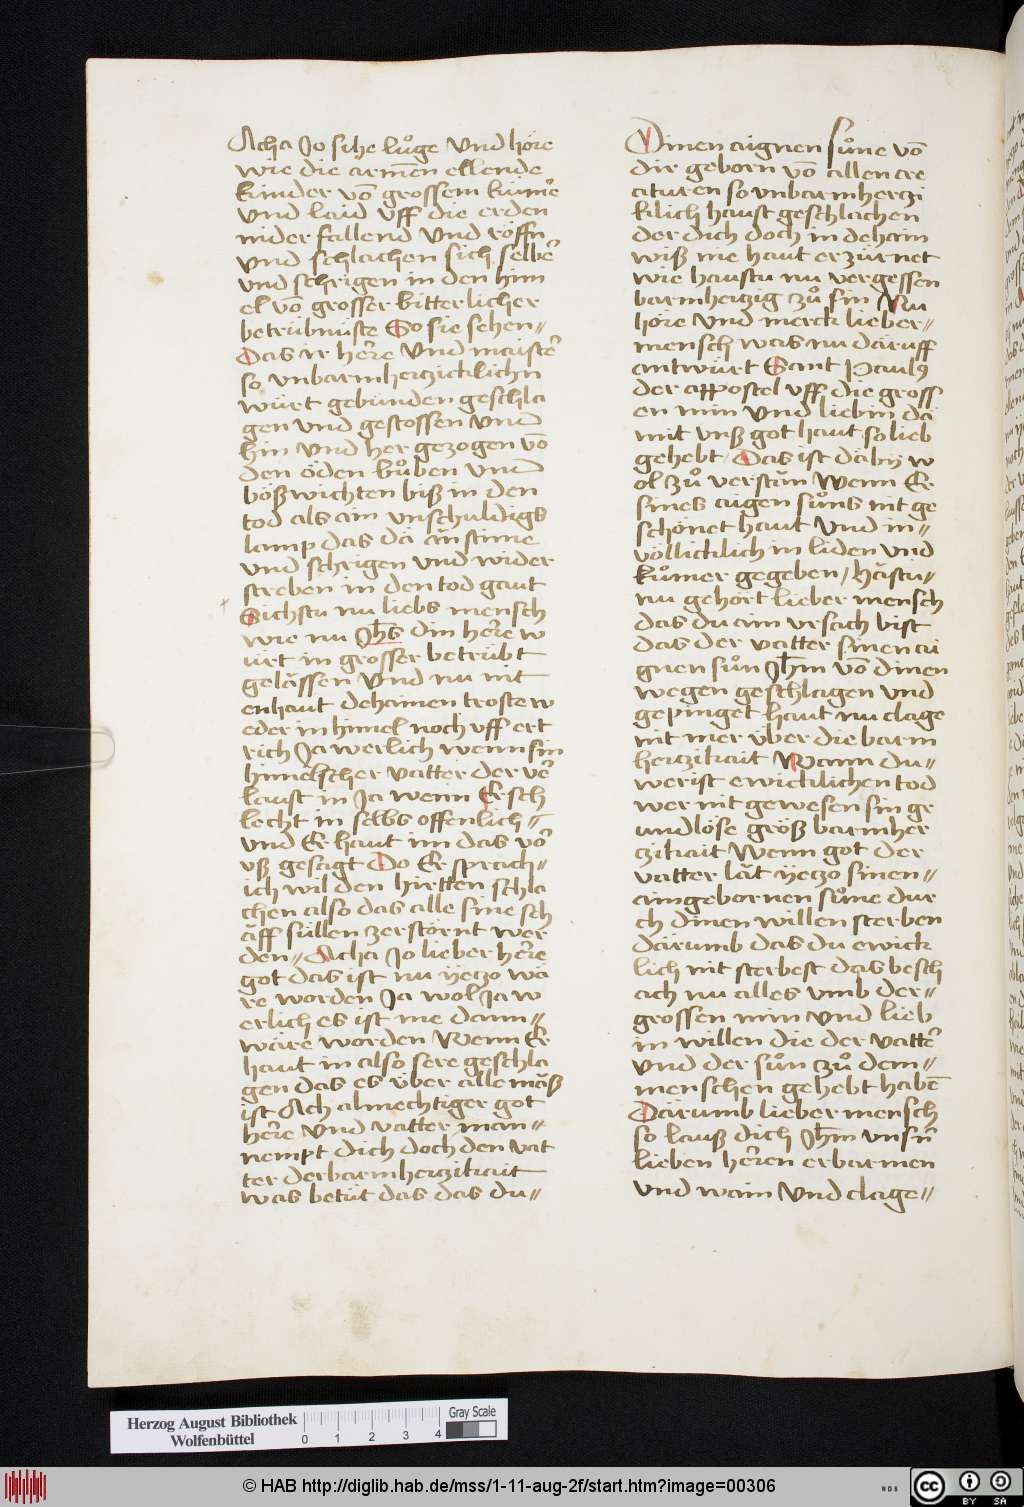 Acha Jo sihe lůge vnd höre
wie die armen̄ ellende
kinder vō grossem kum̄er
vnd laid vff die erden
nider fallend vnd röffn
vnd schlachen sich selber̄
vnd schrigen in den him
el vō grosser bitterlicher
betrübnüste So sie sehen〃
Das ir her̄re vnd maister̄
so vnbarmherczicklichn
würt gebunden geschla
gen vnd gestossen vnd
hin vnd her gezogen vō
den öden bůben vnd
bößwichten biß in den
tod als ain vnschuldigs
lamp das dä än stime
vnd schrigen vnd wider
streben in den tod gaut
Sichstu nu liebs mensch
wie nu Jhs din her̄re w
ürt in grosser betrübt
gelässen vnd nu nit
enhaut dehainen troste w
eder in himel noch vff ert
rich Ja werlich wenn sin
himelscher vatter der ver̄
laust in Ja wenn Er sch
lecht in selbs offenlich〃
vnd Er haut im das vor̄
vß gesagt Do Er sprach〃
ich wil den hirtten schla
chen also das alle sine sch
äff süllen zerstörnt wer
den〃 Acha Jo lieber her̄re
got das ist nu yeczo wä
re worden Ja wol Ja w
erlich es ist me dann〃
wäre worden Wenn Er
haut in also sere geschla
gen das es über alle mäß
ist Ach almechtiger got
her̄re vnd vatter man〃
nempt dich doch den vat
ter der barmherczikait
was betüt das das du〃
Dinen aignen sůne vō
dir geborn vō allen cre
aturen so vnbarmherczi
klich haust geschlachen
der dich doch in dehain
wiß nie haut erzürnet
wie haustu nu vergessen
barmherczig zů sin Nu
höre vnd merck lieber〃
mensch was nu däruff
antwürt Sant Paulꝰ
der appostel vff die gross
en min vnd liebin dä
mit vnß got haut so lieb
gehebt Das ist däby w
ol zů verstän Wenn Er
sines aigen sůns nit ge
schonet haut vnd in〃
völlicklich in liden vnd
kůmer gegeben / Hästu〃
nu gehört lieber mensch
das du ain vrsach bist
das der vatter sinen ai
gnen sůn Jhm vō dinen
wegen geschlagen vnd
gepinget haut nu clage
nit mer über die barm
herczikait Wann du〃
werist ewicklichen tod
wer nit gewesen sin gr
undlöse größ barmher
czikait Wenn got der
vatter lät yeczo sinen〃
aingebornen sůne dur
ch dinen willen sterben
därumb das du ewick
lich nit sterbest das besch
ach nu alles vmb der〃
grossen min vnd lieb
in willen die der vatter̄
vnd der sůn zů dem〃
menschen gehebt haben̄
Därumb lieber mensch
so lauß dich Jhm vnsrn̄
lieben her̄ren erbarmen
vnd wain vnd clage〃
Herzog August Bibliothek
Wolfenbüttel
Gray Scale
0 1 2 3 4
© HAB http://diglib.hab.de/mss/1-11-aug-2f/start.htm?image=00306
WDB
cc BY SA